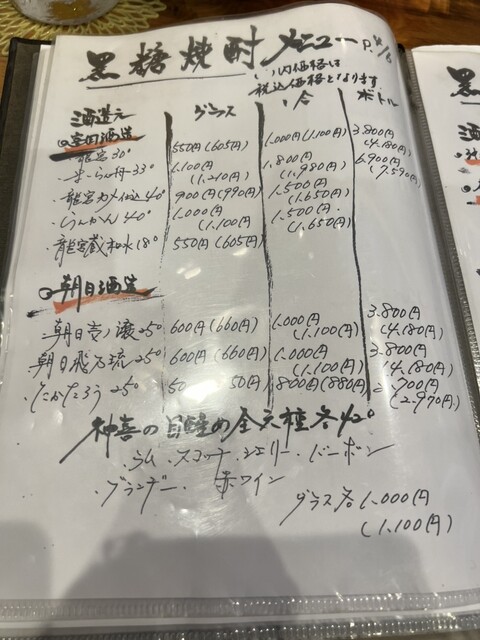 黒糖焼酎メニュー P.4/6
( )内価格は
税込価格となります
酒造元 グラス 一合 ボトル
富田酒造
・龍宮 30° 550円(605円) 1.000円(1.100円) 3.800円(4.180円)
・まーらん舟 33° 1.100円(1.210円) 1.800円(1.980円) 6.900円(7.590円)
・龍宮カメ仕込 40° 900円(990円) 1.500円(1.650円)
・らんかん 40° 1.000円(1.100円 1.500円.(1.650円)
・龍宮蔵和水 18° 550円(605円)
朝日酒造
・朝日壱ノ醸 25° 600円(660円) 1.000円(1.100円) 3.800円(4.180円)
・朝日飛乃流 25° 600円(660円) 1.000円(1.100円) 3.800円(4.180円)
・たかたろう 25° 50 50円) 800円(880円) 2.700円(2.970円)
神喜の目醒め全六種各42°
・ラム・スコッチ・シェリー・バーボン
・ブランデー・赤ワイン
グラス各1.000円
(1.100円)
黒
酒